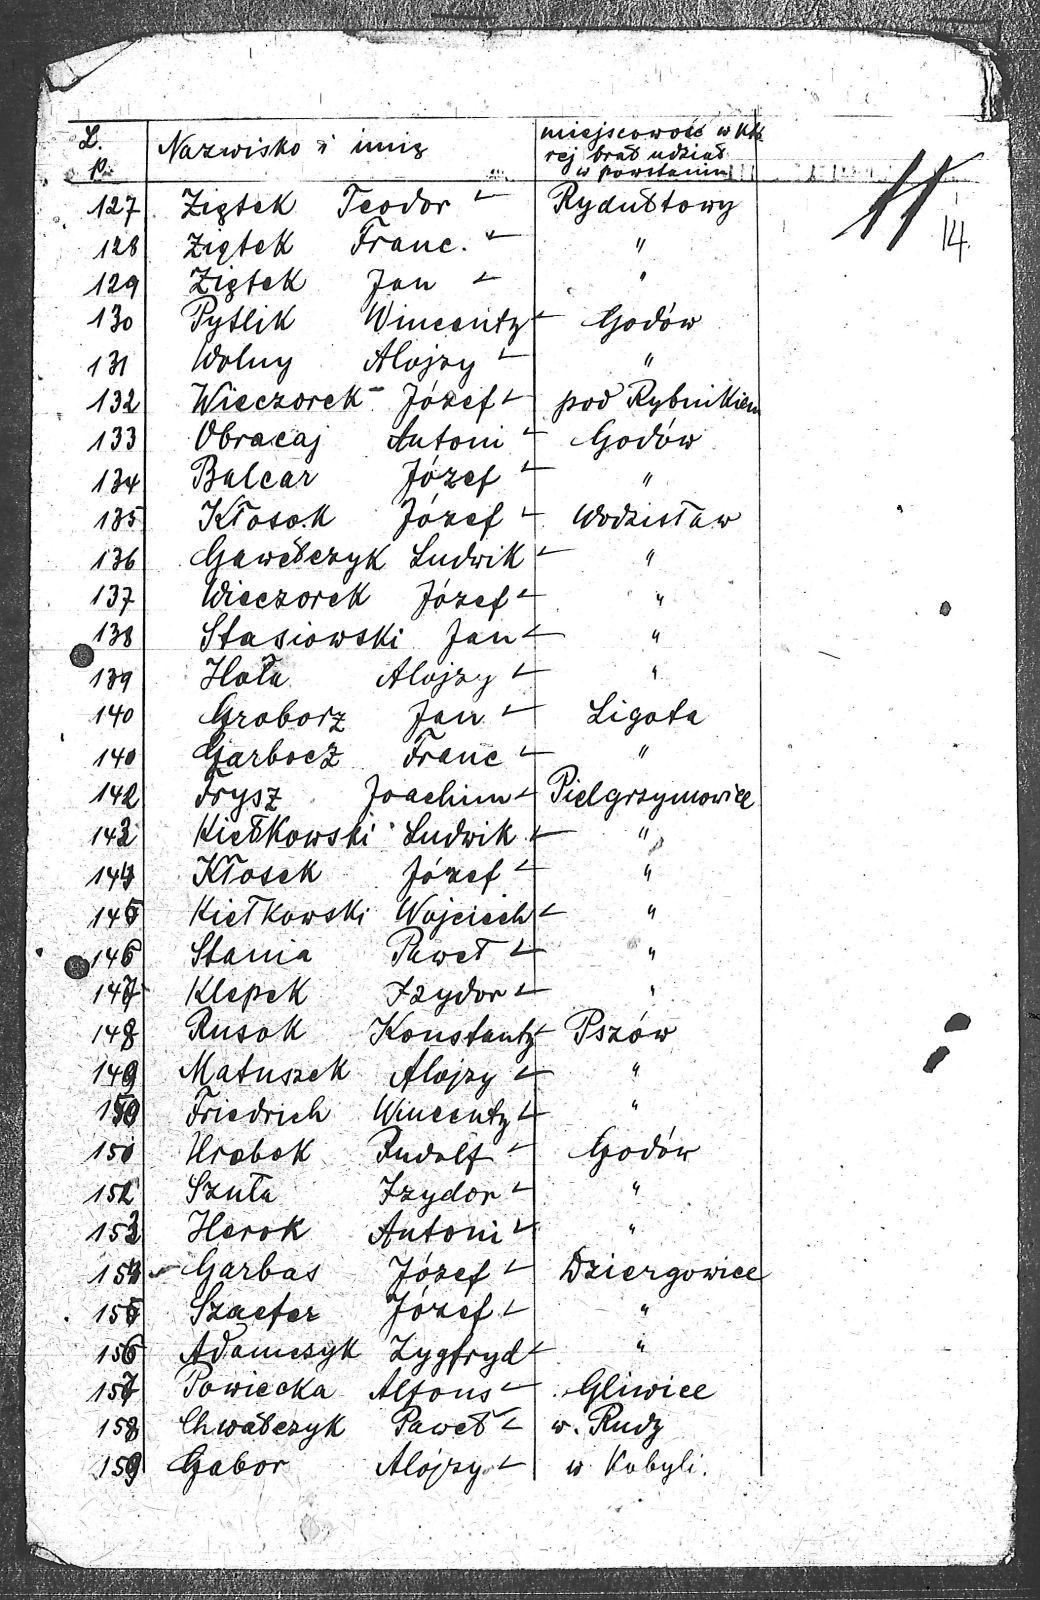 L. p. Nazwisko i imię miejscowość w któ
rej brał udział
w powstaniu
11
14.
127 Ziętek Teodor Rydułtowy
128 Ziętek Franc. "
129 Ziętek Jan "
130 Pytlik Wincenty Godów
131 Wolny Alojzy "
132 Wieczorek Józef pod Rybnikiem
133 Obracaj Antoni Godów
134 Balcar Józef "
135 Kłosok Józef Wodzisław
136 Gawełczyk Ludwik "
137 Wieczorek Józef "
138 Stasiowski Jan "
139 Hała Alojzy "
140 Groborz Jan Ligota
140 Garbocz Franc "
142 Frysz Joachim Pielgrzymowice
143 Kiełkowski Ludwik "
144 Kłosek Józef "
145 Kiełkowski Wojciech "
146 Stania Paweł "
147 Klepek Izydor "
148 Rusok Konstanty Pszów
149 Matuszek Alojzy "
150 Friedrich Wincenty "
151 Hrabok Rudolf Godów
152 Szuła Izydor "
153 Herok Antoni "
154 Garbas Józef Dziergowice
155 Szaefer Józef "
156 Adamczyk Zygfryd "
157 Powiecka Alfons Gliwice
158 Chwałczyk Paweł w. Rudy
159 Gabor Alojzy w Kobyli.